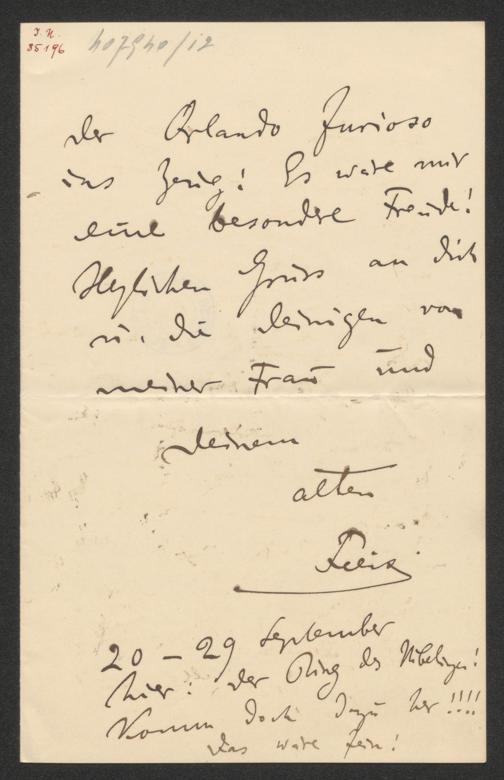 I. N.
35196
407940/12
der Orlando Furioso
ins Zeug! Es wäre mir
eine besondere Freude!
Herzlichen Gruss an dich
u. die deinigen von
meiner Frau und
deinem
alten
Felix
20 – 29 September
hier: der Ring des Nibelungen!
Komm doch dazu her!!!!
das wäre fein!